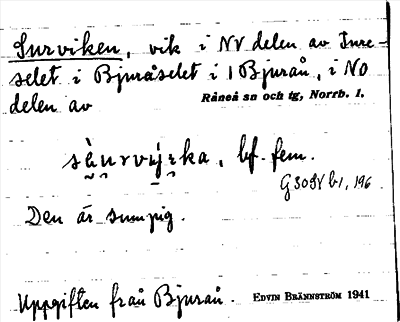 Surviken, vik i NV delen av Inre-
selet i Bjuråselet i 1 Bjurån, i NO
delen av
Råneå sn och tg, Norrb. l.
sùrvi̬ka, bf. fem.
Den är sumpig.
Uppgiften från Bjurån. EDVIN BRÄNNSTRÖM 1941